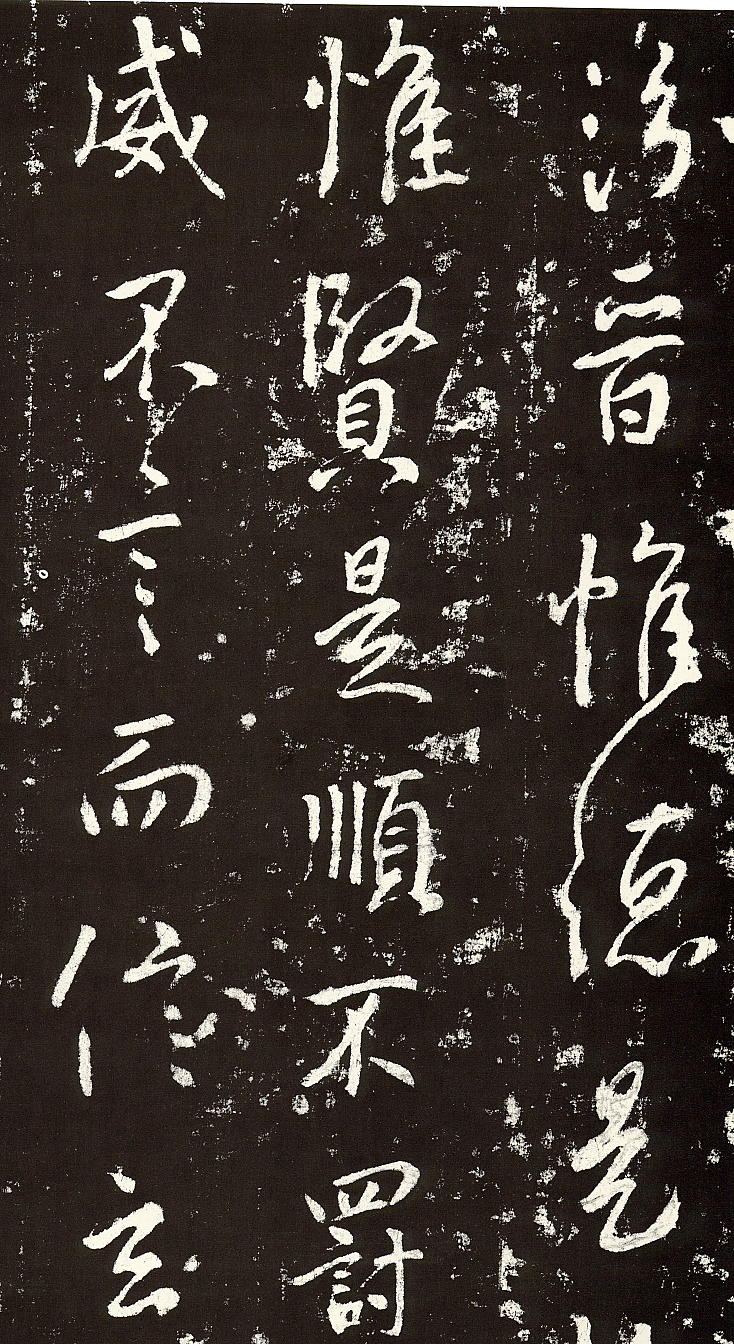 汾晉惟德是
惟賢是順不罰
威不言而信玄